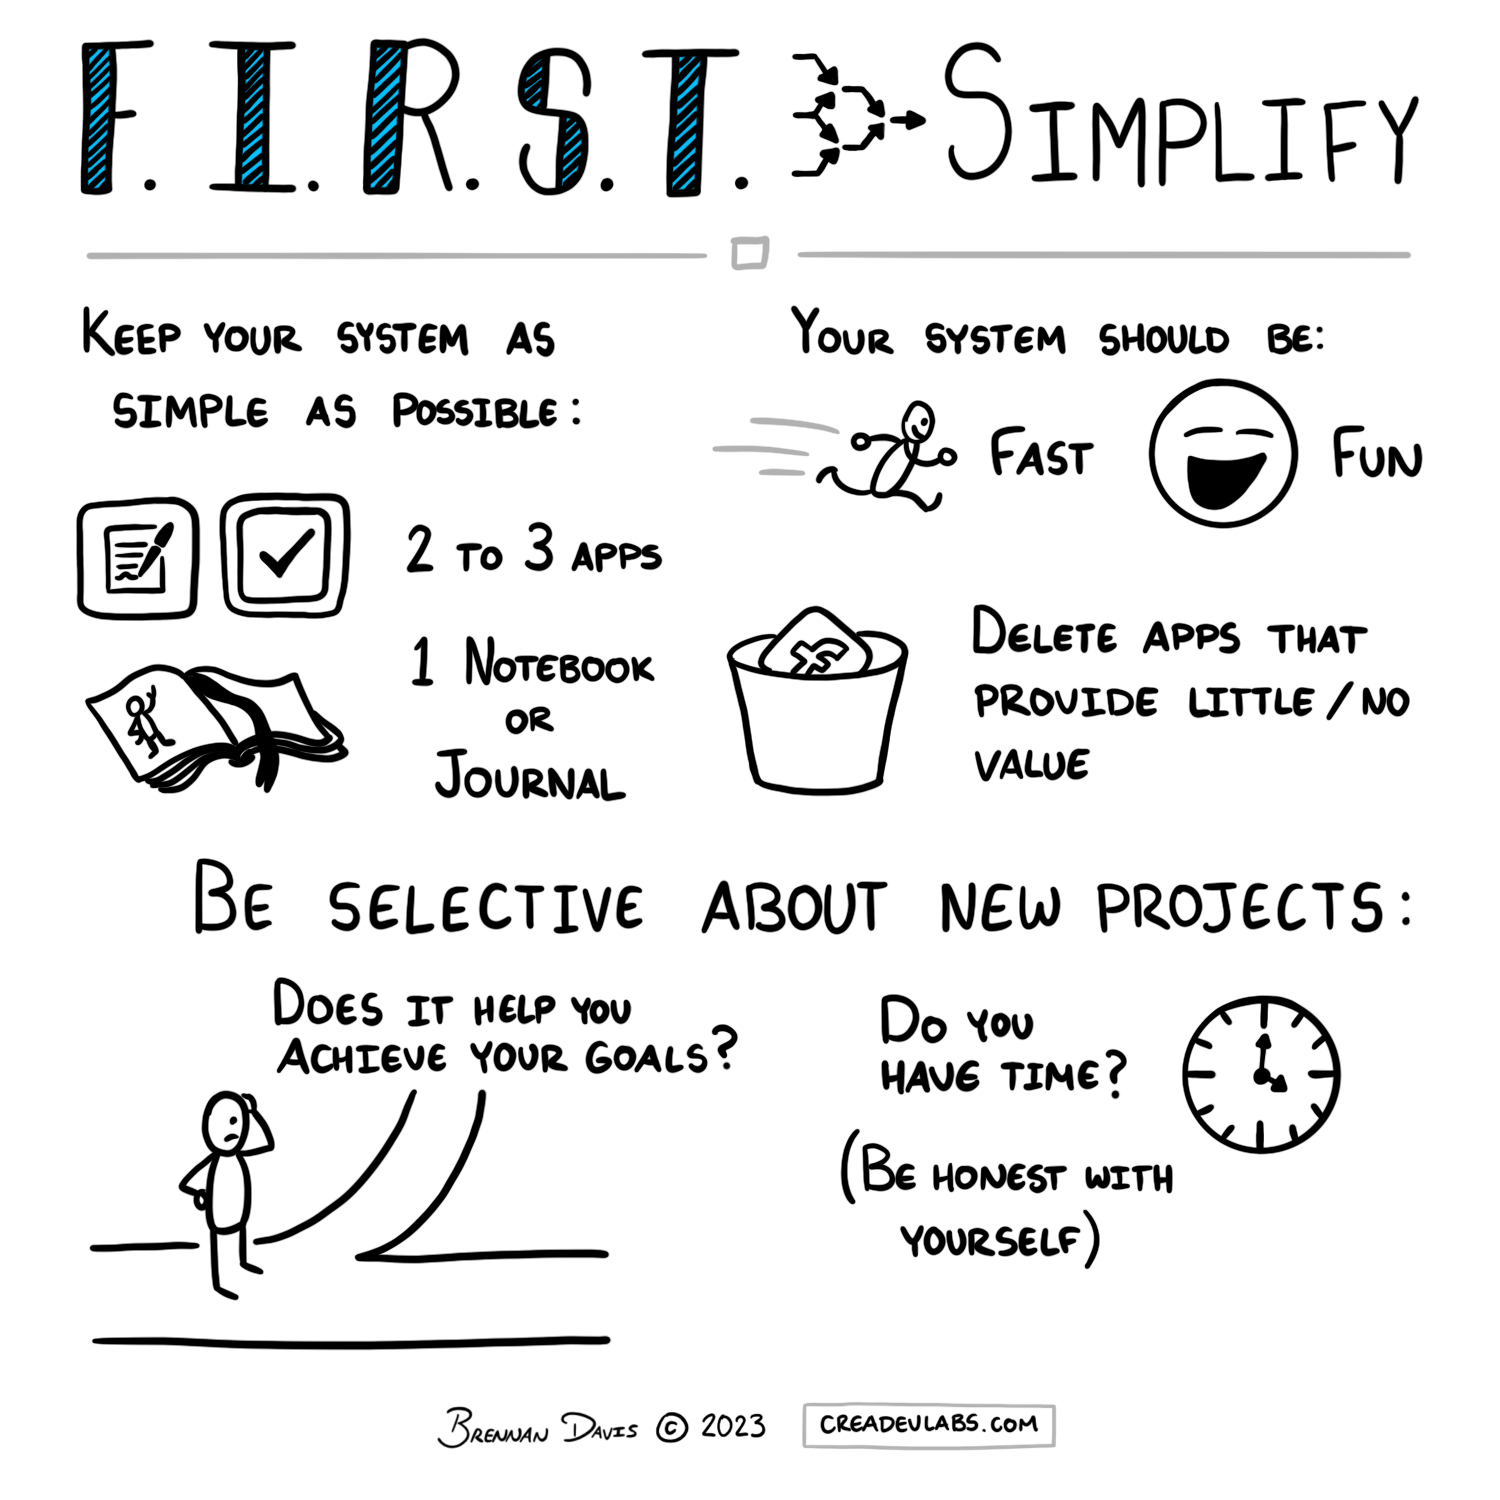 F.I.R.S.T. SIMPLIFY
KEEP YOUR SYSTEM AS
SIMPLE AS POSSIBLE:
2 TO 3 APPS
1 NOTEBOOK
OR
JOURNAL
YOUR SYSTEM SHOULD BE:
FAST
FUN
f
DELETE APPS THAT
PROVIDE LITTLE/NO
VALUE
BE SELECTIVE ABOUT NEW PROJECTS:
DOES IT HELP YOU
ACHIEVE YOUR GOALS?
DO YOU
HAVE TIME?
(BE HONEST WITH
YOURSELF)
BRENNAN DAVIS © 2023
CREADEVLABS.COM